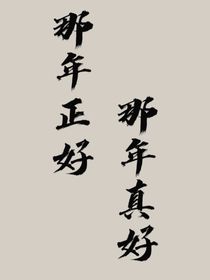 那年正好
那年真好